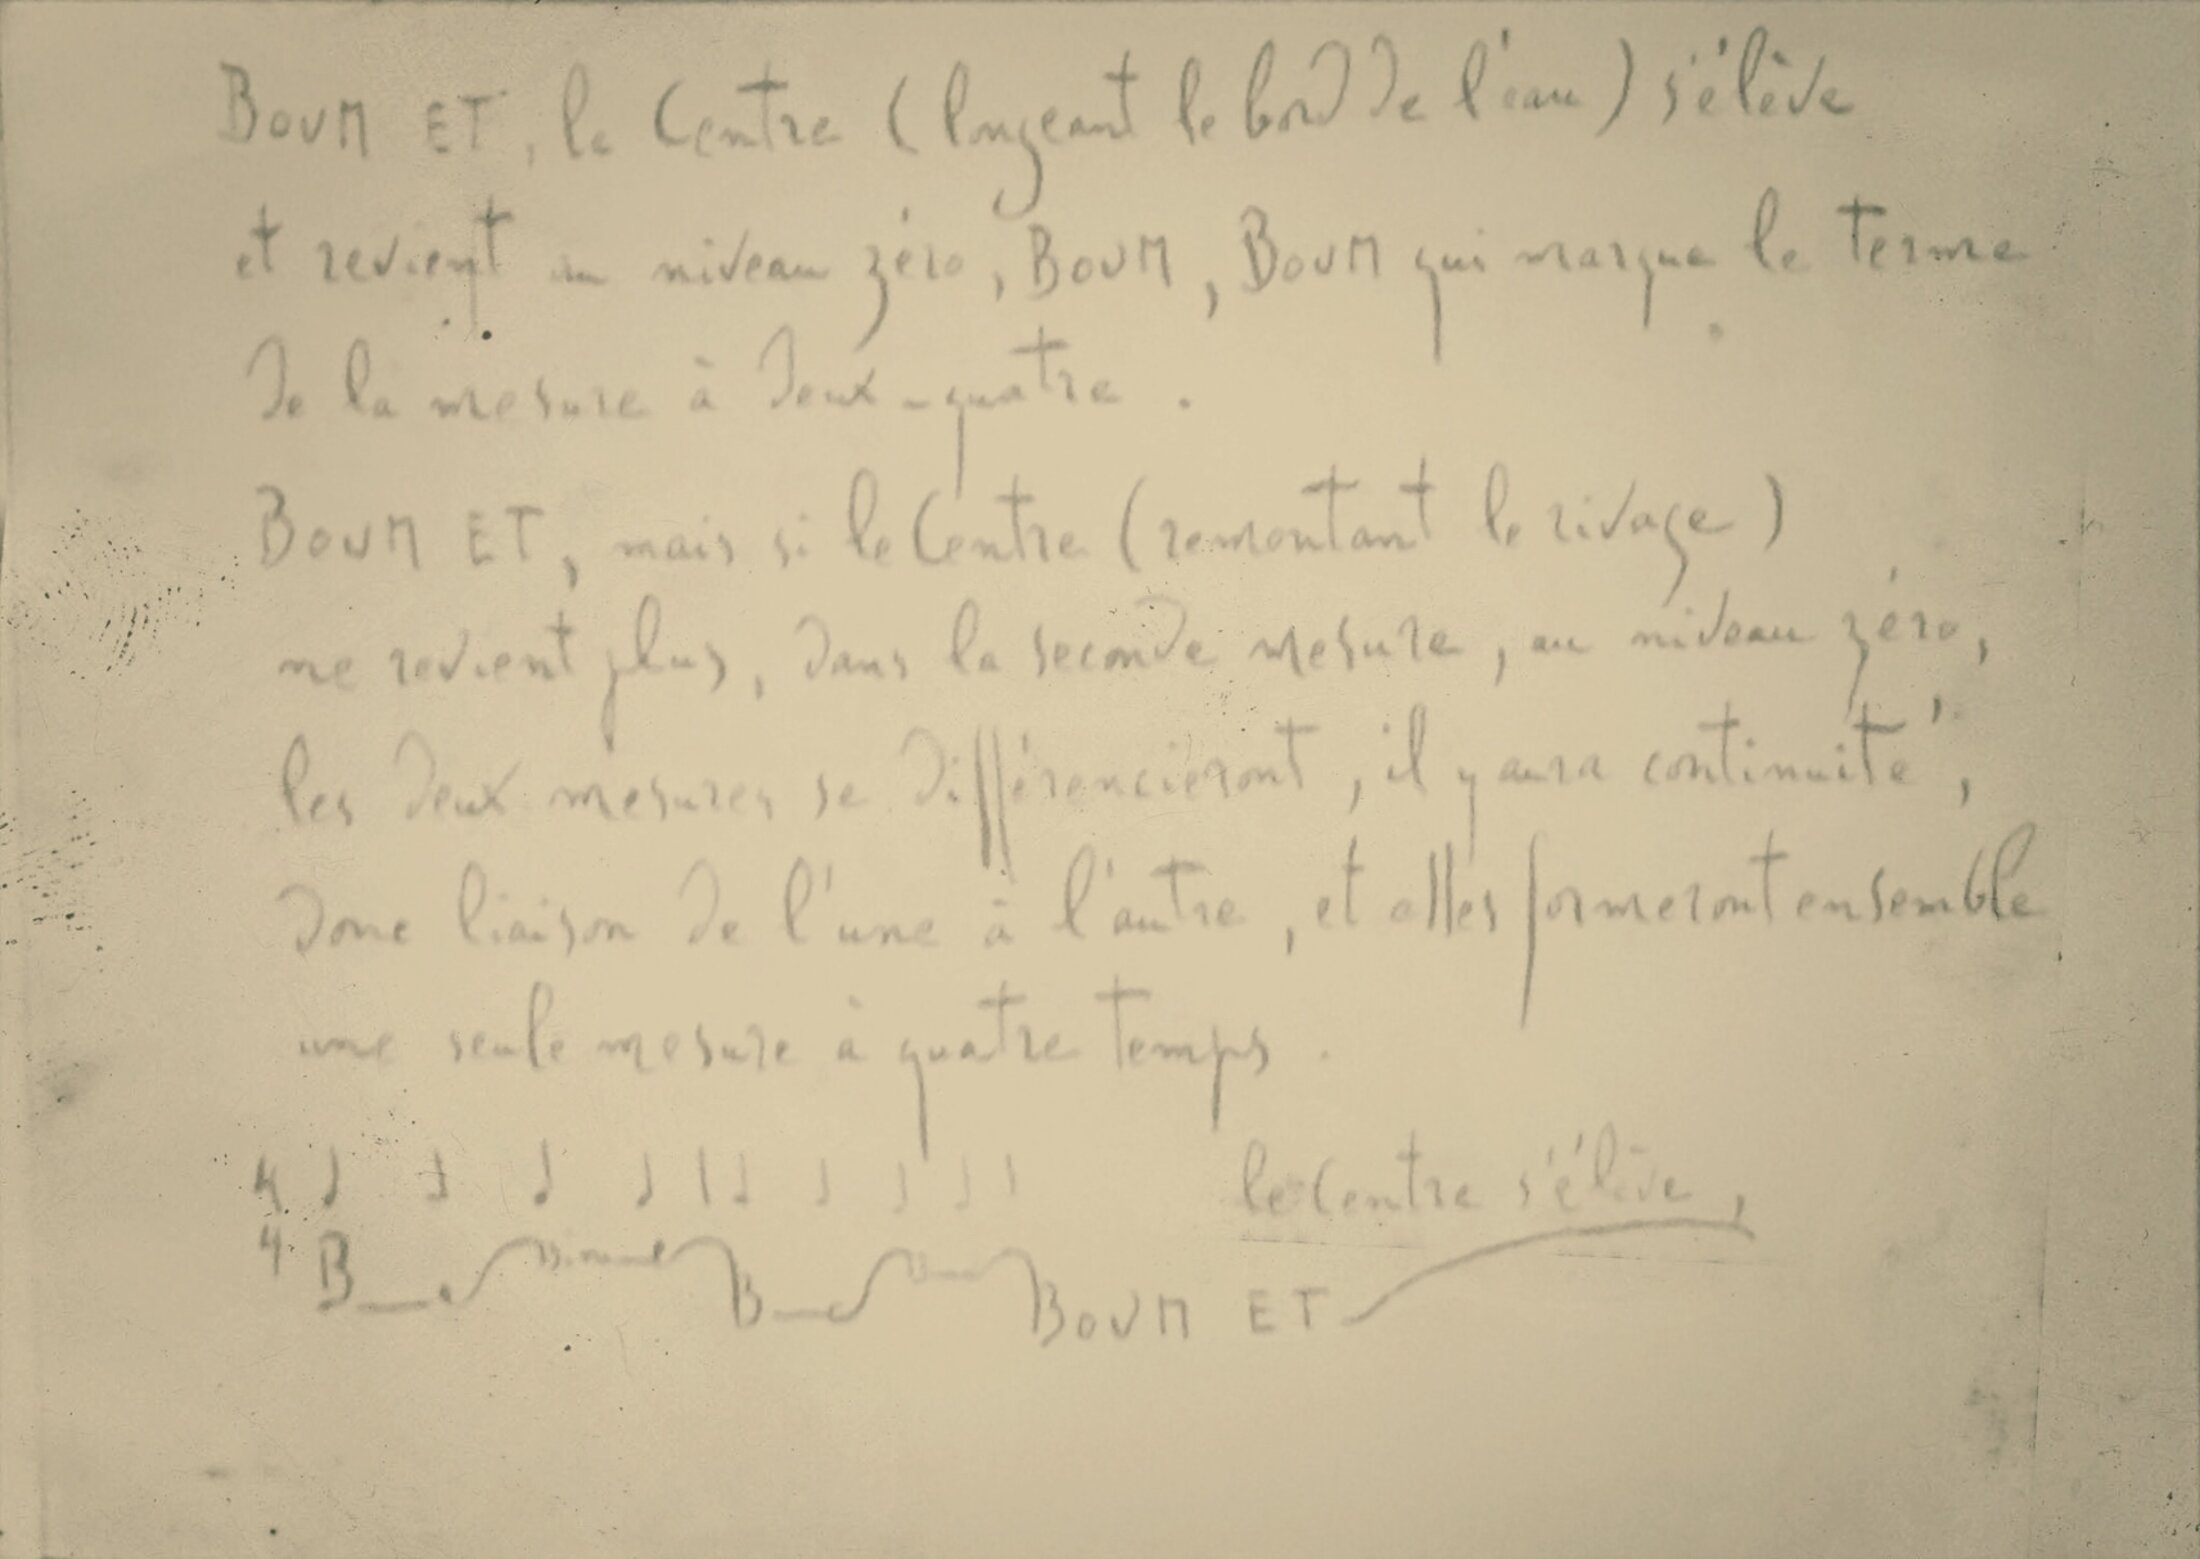 BOUM ET, le Centre (longeant le bord de l'eau) s'élève
et revient au niveau zéro, BOUM, BOUM qui marque le terme
de la mesure à deux-quatre.
BOUM ET, mais si le Centre (remontant le rivage)
ne revient plus, dans la seconde mesure, au niveau zéro,
les deux mesures se différencieront, il y aura continuité,
donc liaison de l'une à l'autre, et elles formeront ensemble
une seule mesure à quatre temps.
4 ♩ ♩ ♩ ♩ | ♩ ♩ ♩ ♩ | le Centre s'élève,
4 B B BOUM ET